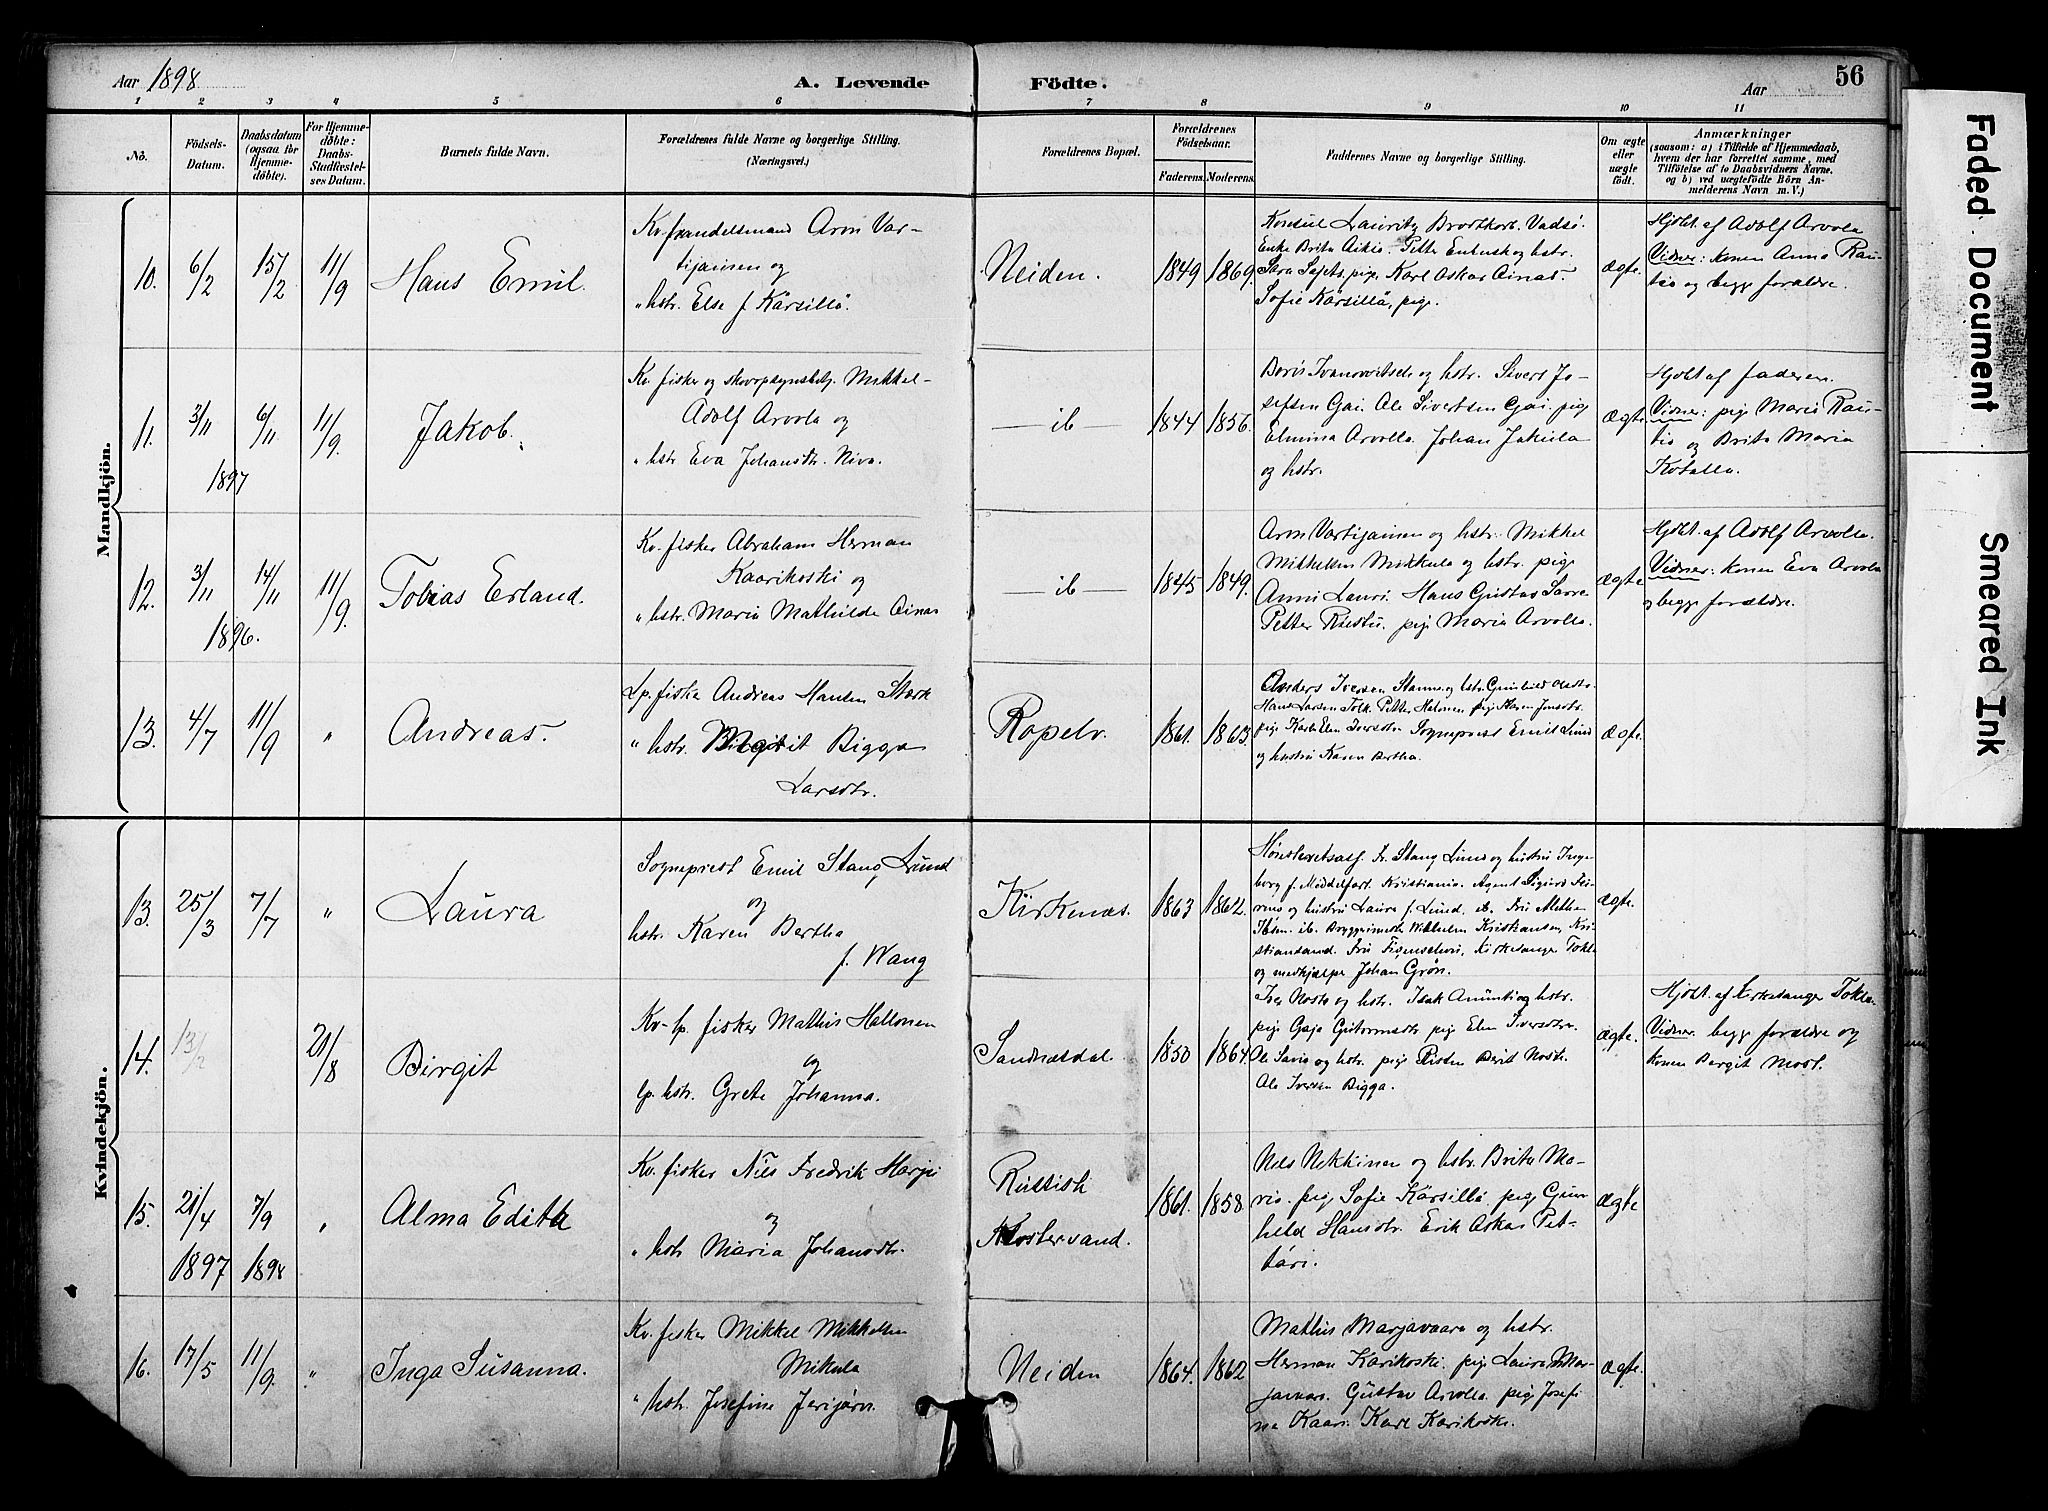 Aar 1898
A. Levende Födte.
Aar
56
1 2 3 4 5 6 7 8 9 10 11
No.
Födsels-Datum.
Daabsdatum (ogsaa for Hjemme-døbte).
For Hjemme-døbte: Daabs-Stadfæstel-ses Datum.
Barnets fulde Navn.
Forældrenes fulde Navne og borgerlige Stilling.
(Næringsvei.)
Forældrenes Bopæl.
Forældrenes Födselsaar.
Faderens. Moderens.
Faddernes Navne og borgerlige Stilling.
Om ægte eller uægte födt.
Anmærkninger
(saasom: a) i Tilfælde af Hjemmedaab,
hvem der har forrettet samme, med
Tilföielse af to Daabsvidners Navne.
og b) ved uægtefödte Börn An-
melderens Navn m. V.)
Mandkjön.
10. 6/2 15/2 11/9 Hans Emil.
Kv. frandelsmand Aron Var-
tijainen og
" hstr. Else f. Kärsillö.
Neiden. 1849 1869.
Konsul Lauritz Brodtkorb. Vadsö.
Enke Brita Aikio. Petter Enbusk og hstr.
Sara Sajets, pige. Karl Oskar Ainas.
Sofie Kärsillö, pige.
ægte.
Hjdbt. af Adolf Arvola
Vidner: konen Anna Rau-
tio og begge forældre.
11. 3/11 6/11 11/9 1897 Jakob.
Kv. fisker og skovopsynsbetj. Mikkel-
Adolf Arvola og
" hstr. Eva Johansdtr. Niva.
— ib — 1844 1856.
Boris Ivanowitsch og hstr. Sivert Jo-
sefsen Gai. Ole Sivertsen Gai. pige
Elmina Arvolla. Johan Jakula
og hstr.
ægte.
Hjdbt af faderen.
Vidner: pige Maria Rau-
tio og Brita Maria
Kotalla.
12. 3/11 14/11 11/9 1896. Tobias Erland.
Kv. fisker Abraham Herman
Kaarikoski og
" hstr. Maria Mathilde Ainas
— ib — 1845 1849.
Aron Vartijainen og hstr. Mikkel
Mikkelsen Mikkula og hstr. pige
Anni Lauri. Hans Gustav Savre
Petter Ruestu. pige Maria Arvolla.
ægte
Hjdbt. af Adolf Arvolla.
Vidner: konen Eva Arvola
og begge forældre.
13. 4/7 11/9 " Andreas.
Lp. fisker Andreas Hansen Stærk
" hstr. Birgit Bigga
Larsdtr.
Ropelv. 1861. 1863.
Anders Iversen Stamnes og hstr. Gunhild Olsdtr.
Hans Larsen Tolk. Petter Halonen pige Karen Jonsdtr.
pige Karl Elen Iversdtr. Sogneprest Emil Lund
og hustru Karen Bertha.
ægte.
Kvindekjön.
13. 25/3 7/7 " Laura
Sogneprest Emil Stang Lund
og
hstr. Karen Bertha
f. Wang
Kirkenæs. 1863 1862.
Höiesteretsass. Fr. Stang Lund og hustru Inge-
borg f. Middelfart. Kristiania. Agent Sigurd
og hustru Laura f. Lund. ib. Fru Milla
Ibsen. ib. Bryggerimester Wilhelm Kristiansen, Kri-
stiansand. Fru Kirkesanger Tokle
og medhjælper Johan Grön.
ægte.
14. 13/2 21/8 Birgit
Kv.-lp. fisker Mathis Hallonen
og
lp. hstr. Grete Johanna.
Sandnæsdal. 1850 1864.
Iver Noste og hstr. Isak Amunti og hstr.
pige Gaja Guttormsdtr pige Elen Iversdtr.
Ole Savio og hstr. pige Risten Berid Noste.
Ole Iversen Bigga.
ægte.
Hjdbt. af Kirkesanger Tokle.
Vidner: begge forældre og
konen Birgit Nost.
15. 21/4 7/9 " 1897 1898 Alma Edith
Kv. fisker Nils Fredrik Harju
og
" hstr Maria Johansdtr.
Russisk
Klostervand.
1861. 1858.
Nils Nikkinen og hstr. Brita Ma-
ria. pige Sofie Kärsillö pige Gun-
hild Hansdtr. Erik Askar Pet-
täri.
ægte
16. 17/5 11/9. " Inga Susanna.
Kv. fisker Mikkel Mikkelsen
Mikula
" hstr. Josefine Jerijärvi.
Neiden 1864. 1862
Mathis Marjavaara og hstr.
Herman Karikoski. pige Laura Mar-
javaara. Gustav Arvolla. pige Josefi-
na Kaari. Karl Karikoski.
ægte.
Faded Document
Smeared Ink